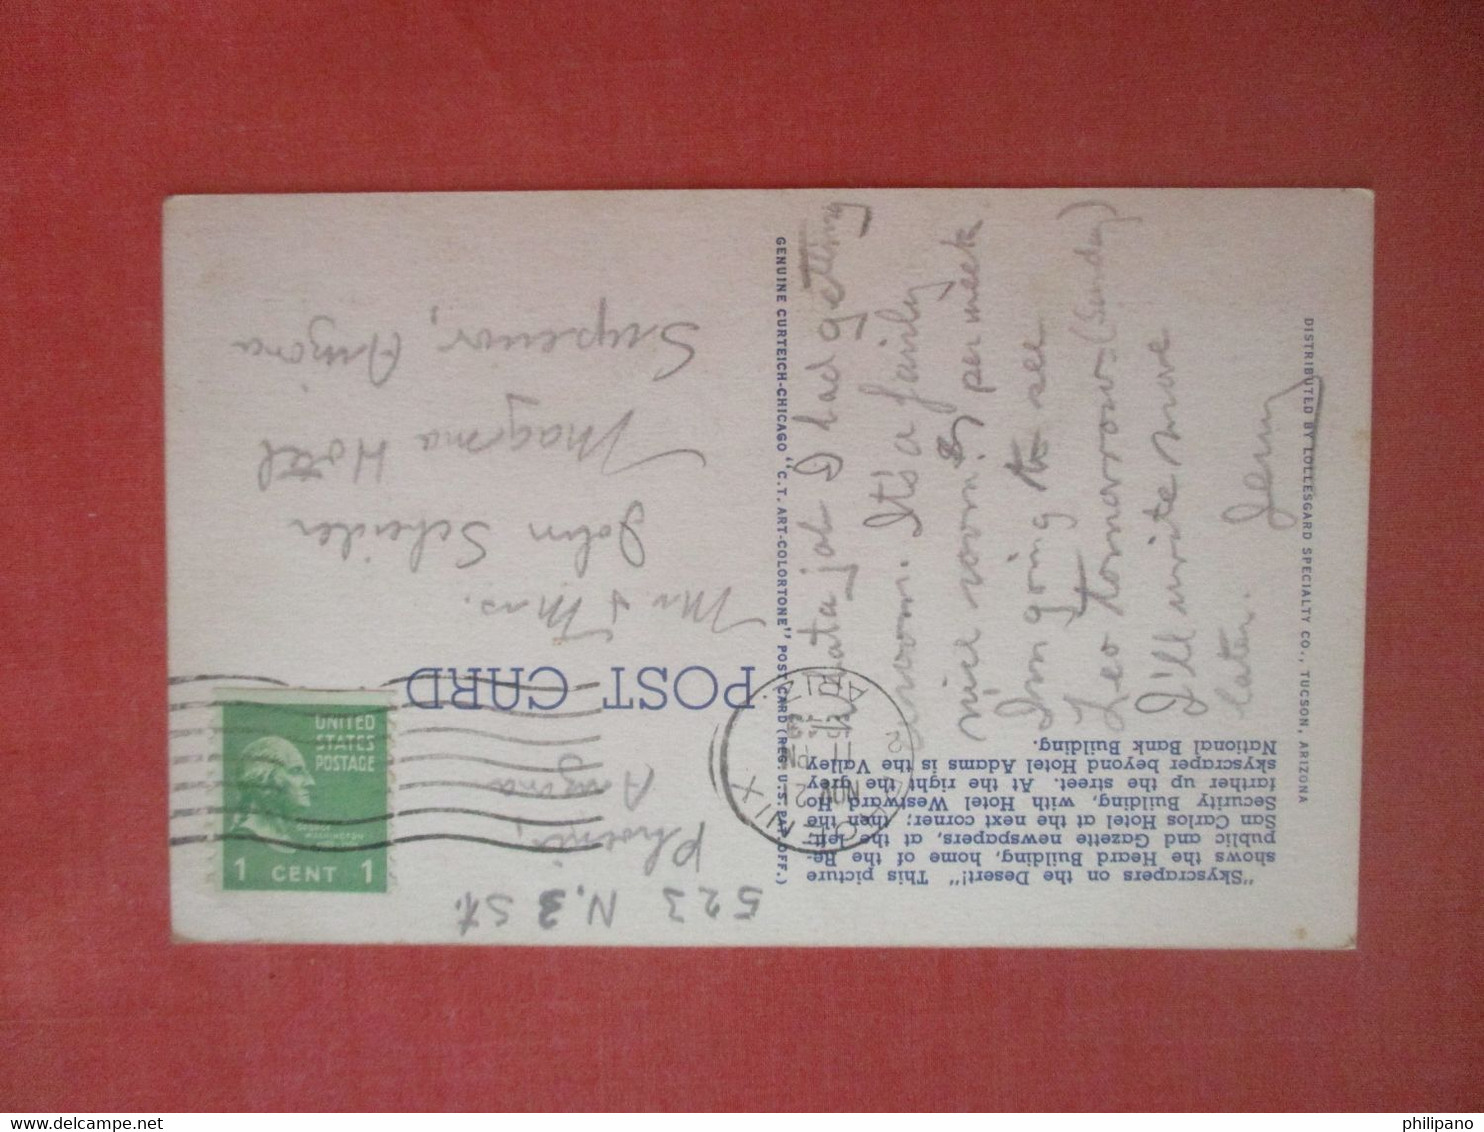 "Skyscrapers on the Desert!" This picture
shows the Heard Building, home of the Re-
public and Gazette newspapers, at the left;
San Carlos Hotel at the next corner; then the
Security Building, with Hotel Westward Ho
farther up the street. At the right the grey
skyscraper beyond Hotel Adams is the Valley
National Bank Building.
523 N. 3 St.
Phoenix,
Arizona
what a job I had getting
a room. It's a fairly
nice room. $5 per week
I'm going to see
Leo tomorrow-(Sunday)
I'll write more
later. Jerry
POST CARD
PHOENIX
NOV
11 PM
ARIZ.
UNITED
STATES
POSTAGE
GEORGE
WASHINGTON
1 CENT 1
Mr & Mrs.
John Scheider
Magma Hotel
Superior,
Arizona
GENUINE CURTEICH-CHICAGO "C.T. ART-COLORTONE" POST CARD (REG. U.S. PAT. OFF.)
DISTRIBUTED BY LOLLESGARD SPECIALTY CO., TUCSON, ARIZONA
philipano